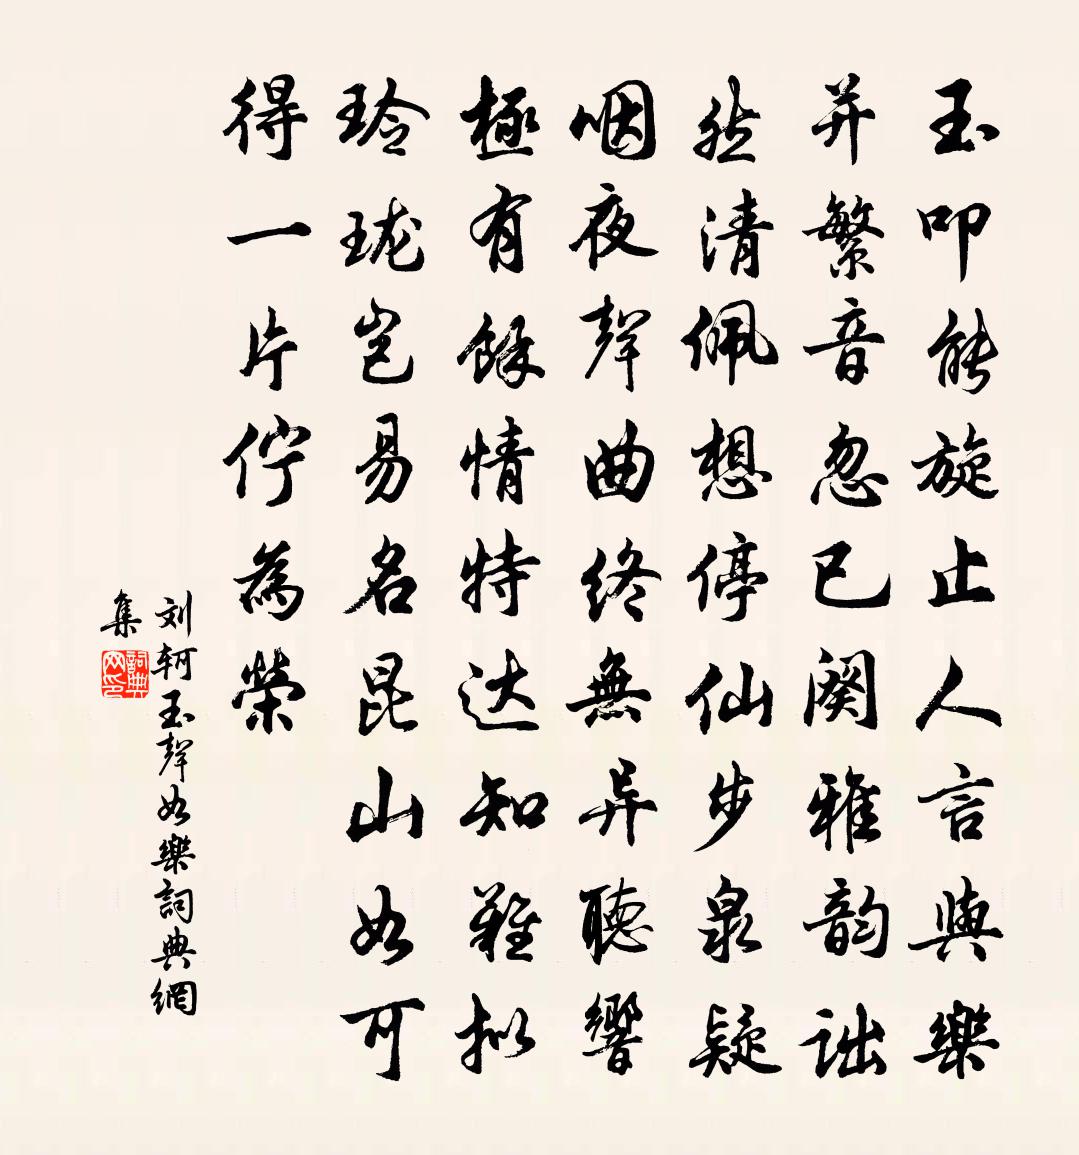 玉叩能旋止人言與樂
并繁音忽已闋雅韵詘
然清佩想停仙步泉疑
咽夜聲曲終無异聽響
極有餘情特达知難拟
玲瓏豈易名昆山如可
得一片佇為榮
刘轲玉聲如樂詞典網
集
詞典网印